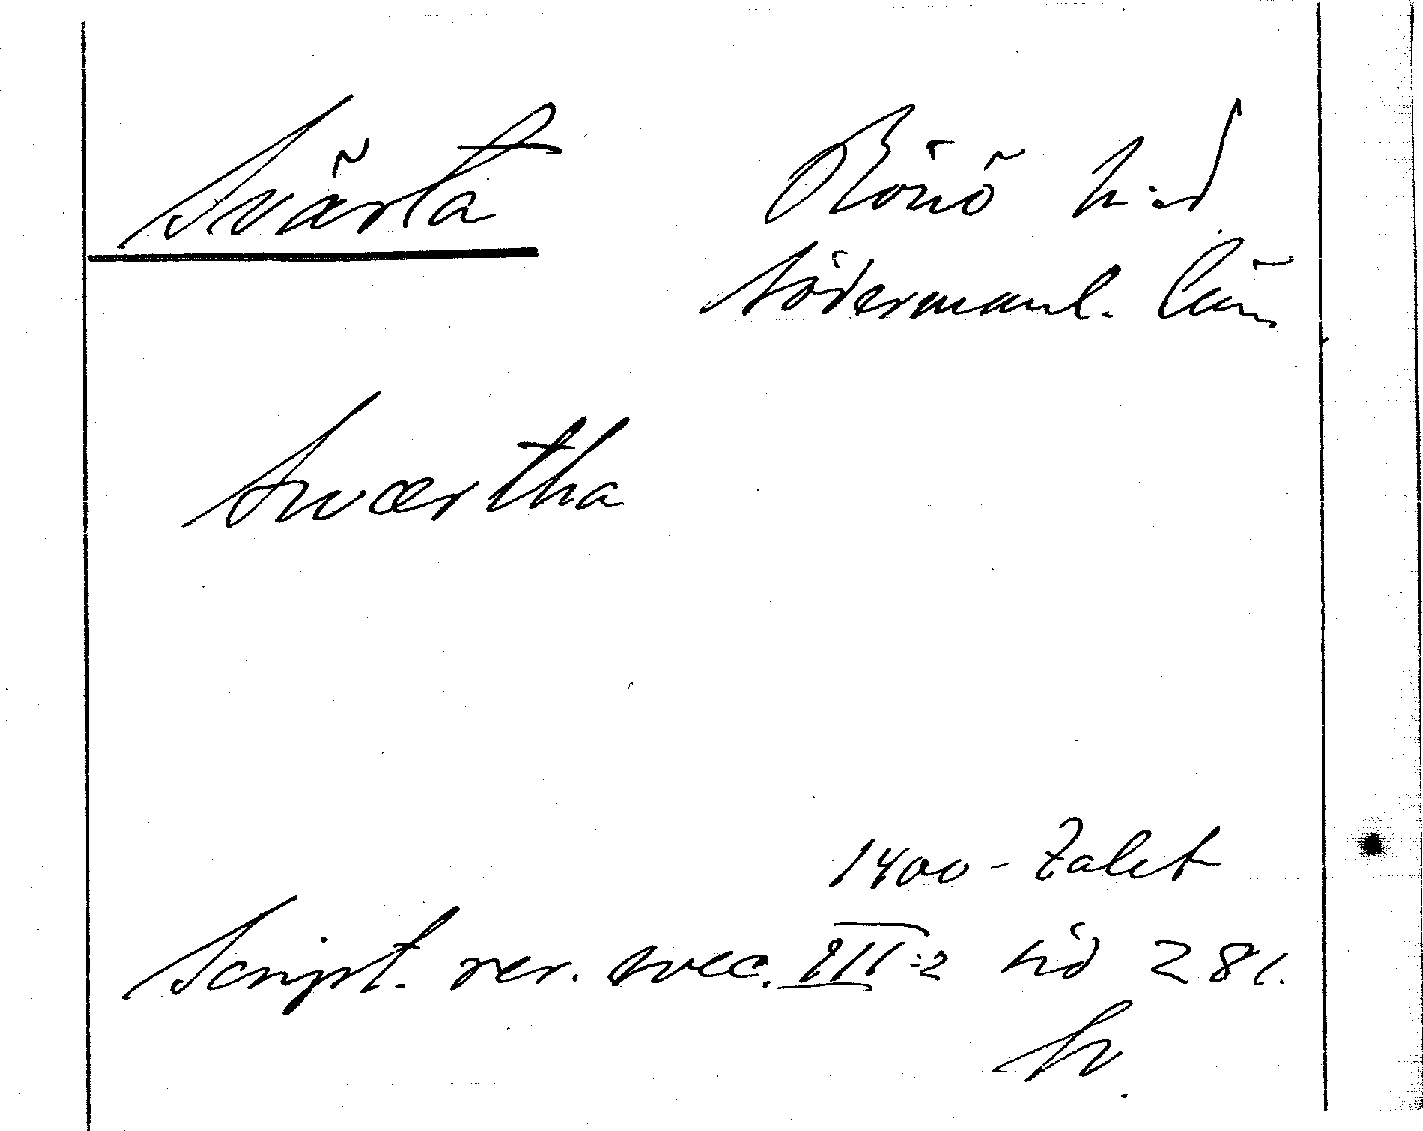 Svärta Rönö h:d
Södermanl. län
Swærtha
1400-talet
Script. rer. svec. III:2 sid 281.